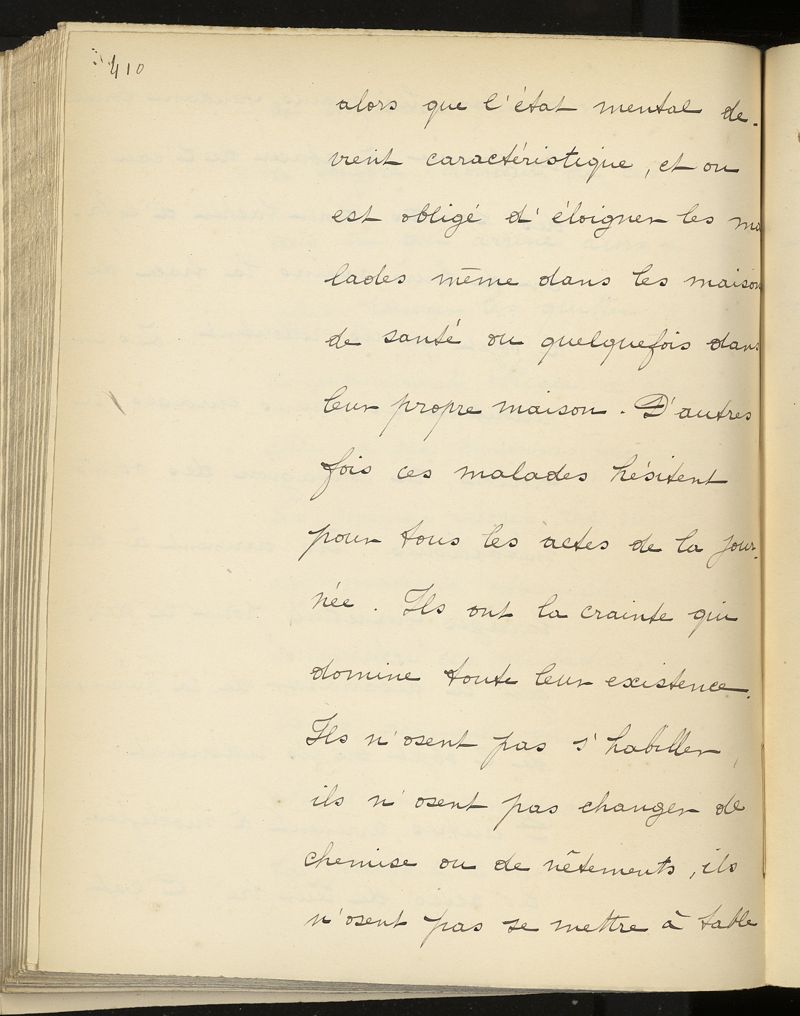 410
alors que l'état mental de-
vient caractéristique, et on
est obligé d'éloigner les ma
lades même dans les maison
de santé ou quelquefois dans
leur propre maison. D'autres
fois ces malades hésitent
pour tous les actes de la jour-
née. Ils ont la crainte qui
domine toute leur existence.
Ils n'osent pas s'habiller,
ils n'osent pas changer de
chemise ou de vêtements, ils
n'osent pas se mettre à table